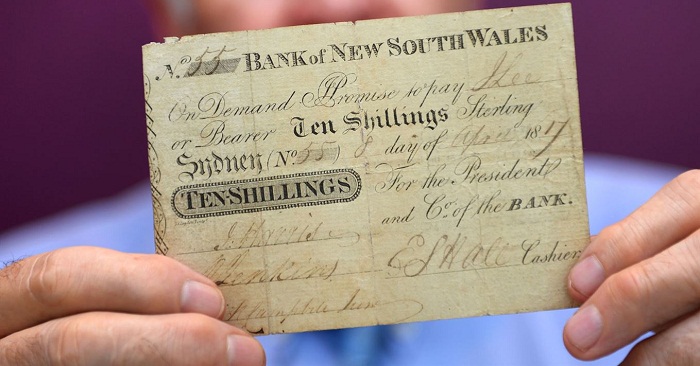 No. 55 BANK of NEW SOUTH WALES
On Demand I Promise to pay
or Bearer Ten Shillings Sterling
Sydney (No 55) 8 day of April 1817
TEN-SHILLINGS For the President
and Co. of the BANK.
J. Harris
Jenkins E S Hall Cashier